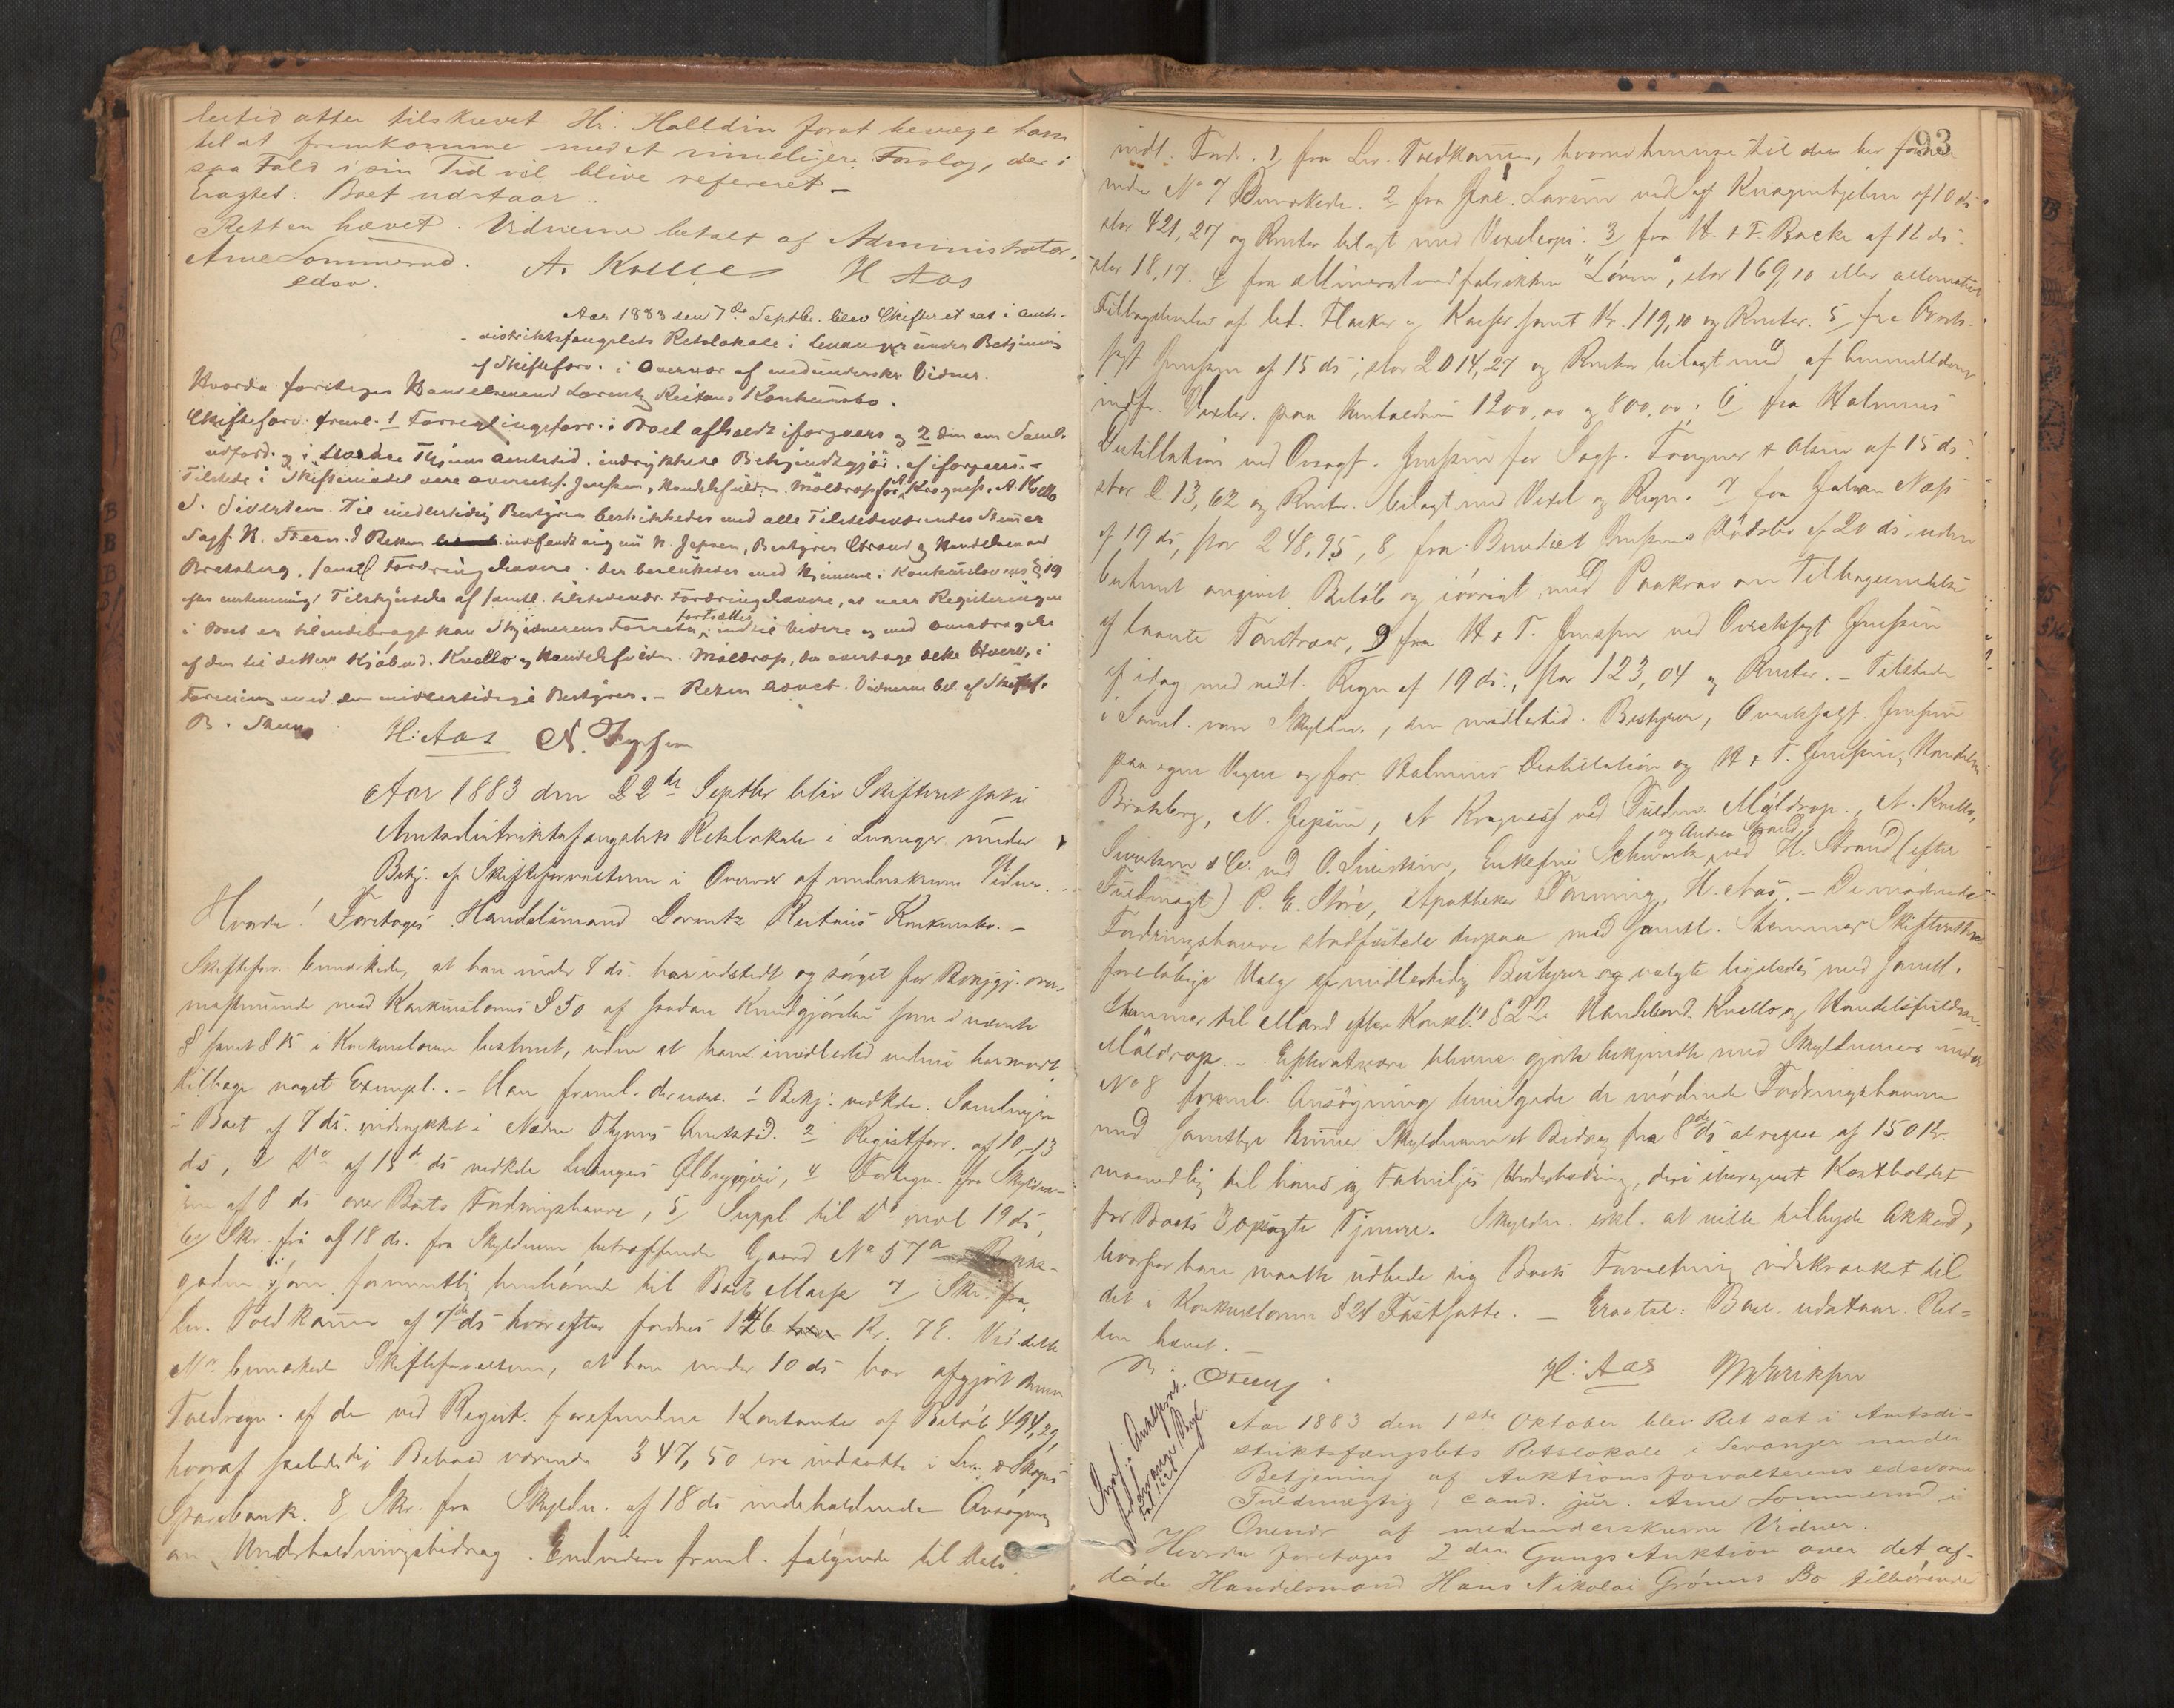 lertid atter tilskrevet Hr. Halldin forat bevæge ham
til at fremkomme med et rimeligere Forslag, der i
saa Fald i sin Tid vil blive refereret –
Eragtet: Boet udstaar.
Retten hævet. Vidnerne betalt af Administrator.
Arne Sommerud. A. Kvello H Aas
edsv.
Aar 1883 den 7de Septbr. blev Skifteret sat i Amts-
distriktsfængslets Retslokale i Levanger under Betjening
af Skifteforv. i Overvær af medunderskr. Vidner.
Hvorda foretages Handelsmand Lorentz Reitans Konkursbo.
Skifteforv. freml. 1 Forseglingsforr. i Boet afholdt iforgaars og 2 den om Saml.
udfærd. og i Nordre Thjems Amtstid. indrykkede Bekjendtgjør. af iforgaars. –
Tilstede i Skiftesamlet vare Overretss. Jenssen, Handelsfuldm. Møldrop for Kragness, A Kvello
S. Sivertsen. Til midlertidig Bestyrer beskikkedes med alle Tilstedeværendes Stemmer
Sagf. N. Steen. I Retten indfandt sig nu N. Jepsen, Bestyrer Strand og Handelsmand
Bratsberg, samtl Fordringshavere. Der besluttedes med Hjemmel i Konkurslovens § 19
efter Tilskyndelse af samtl. tilstedevær. Fordringshavere, at naar Registreringen
fortsættes
i Boet er tilendebragt kan Skyldnerens Forretn. indtil videre og med
af den til dettes Kjøbmd. Kvello og Handelsfuldm. Møldrop, der overtage dette Hverv, i
Forening med den midlertidige Bestyrer. – Retten hævet. Vidnerne bet. af Skiftef.
B. Steen H: Aas N. Jepsen
Aar 1883 den 22de Septbr blev Skifteret sat i
Amtsdistriktsfængslets Retslokale i Levanger under
Betj. af Skifteforvalteren i Overvær af medunderskrevne Vidner.
Hvorda! Foretoges Handelsmand Lorentz Reitans Konkursbo. –
Skifteforv. bemærkede, at han under 7 ds. har udstedt og sørget for Bekjgj. over-
ensstemmende med Konkurslovens § 50 af saadan Kundgjørelse som i nævnte
§ samt § 15 i Konkursloven bestemt, uden at han imidlertid endnu har mod.
tilbage noget Exempl. – Han freml. dernæst 1 Bekj. vedkde. Samlingen
i Boet af 7 ds. indrykket i Nordre Thjems Amtstid. 2 Registforr. af 10–13
ds, 3 Do af 15d ds vedkde Levangers Ølbryggeri, 4 Fortegn. fra Skyldne-
ren af 8 ds over Boets Fordringshavere, 5 Suppl. til Do modt 19 ds,
6 Skr. fra af 18 ds. fra Skyldneren betræffende Gaard No 57a
gaden som formentlig henhørende til Boets Masse 7 Skr. fra
Lev. Toldkammer af 7de ds hvorefter fordres 126 Kr. 78. Ved dette
No bemærkede Skifteforvalteren, at han under 10 ds har afgjort denne
Toldregn. af de ved Regist. forefundne Kontanter af Beløb 494,29,
hvoraf saaledes i Behold værende 347,50 ere indsatte i Lev. & Skogns
Sparebank. 8 Skr. fra Skyldn. af 18 ds indeholdende Ansøgning
om Underholdningsbidrag. Endvidere freml. følgende til dels
93
indl. Fordr. 1 fra Lev. Toldkammer, hvorom henvises til den her foran
under No 7 Bemærkede. 2 fra Jac. Larsen ved Sagf Knagenhjelm af 10 ds
stor 421,27 og Renter bilagt med Vexelcopi. 3 fra H. & F. Backe af 12 ds
stor 18,17. 4 fra Mineralvandfabrikken "Løven", stor 169,10 eller alternativt
Tilbagelevelse af led. Flasker og Kasser samt Kr. 119,10 og Renter. 5 fra Overrets-
sagf Jenssen af 15 ds, stor 2014,27 og Renter bilagt med af
indfr. Vexler. paa 1200,00 og 800,00; 6 fra Kalmeus
Destillation ved Overrsagf. Jenssen for Sagf. Fougner & Olsen af 15 ds.
stor 213,62 og Renter. bilagt med Vexel og Regn. 7 fra Johan Næss
af 19 ds, stor 248,95, 8 fra Benedict Jenssens Dødsbo af 20 ds. uden
bestemt angivet Beløb og iøvrigt med Paakrav om Tilbagesendelse
af laante Tøndrær, 9 fra H. & T. Jenssen ved Overretssagf Jenssen
af idag med vedl. Regn af 19 ds., stor 123,04 og Renter. – Tilstede
i Saml. vare Skyldn., den midlertid. Bestyrer, Overretssagf. Jenssen
paa egne Vegne og for Kalmeus Destillation og H & T. Jenssen, Handelsm
Bratsberg, N. Jepsen, A Kragness ved Fuldm. Møldrop, A. Kvello,
og Andreas Strand
Sivertsen & Co. ved O. Sivertsen, Enkefru Schwartz ved H. Strand (efter
Fuldmagt) P. E. Støre, Apotheker Tønning, H. Aas. – De mødende
Fordringshavere stadfæstede derpaa med samtl. Stemmer Skifterettens
foreløbige Valg af midlertidig Bestyrer og valgte ligeledes med samtl.
Stemmer til Mænd efter Konkl.s § 22 Handelsmd. Kvello og Handelsfuldm.
Møldrop. – Efterat være blevne gjorte bekjendte med Skyldnerens under
No 8 freml. Ansøgning bevilgede de mødende Fordringshavere
med samtlige Stemmer Skyldneren et Bidrag fra 8de ds at regne af 150 Kr.
maanedlig til hans og Families Underholdning, deri iberegnet Kostholdet
for Boets 3 Tjenere. Skyldn. erkl. at ville tilbyde Akkord,
hvorfor han maatte udbede sig Boets Forvaltning indskrænket til
det i Konkursloven § 24 Fastsatte. – Eragtet: Boet udstaar. Ret-
ten hævet. –
B. Steen H: Aas M Eriksen
Indf. i Auktsprot.
for Levanger
Aar 1883 den 1ste Oktober blev Ret sat i Amtsdi-
striktsfængslets Retslokale i Levanger under
Betjening af Auktionsforvalterens edsvorne
Fuldmægtig, cand. jur. Arne Sommerud i
Overvær af medunderskrevne Vidner.
Hvorda foretoges 2den Gangs Auktion over det af-
døde Handelsmand Hans Nikolai Grønns Bo tilhørende